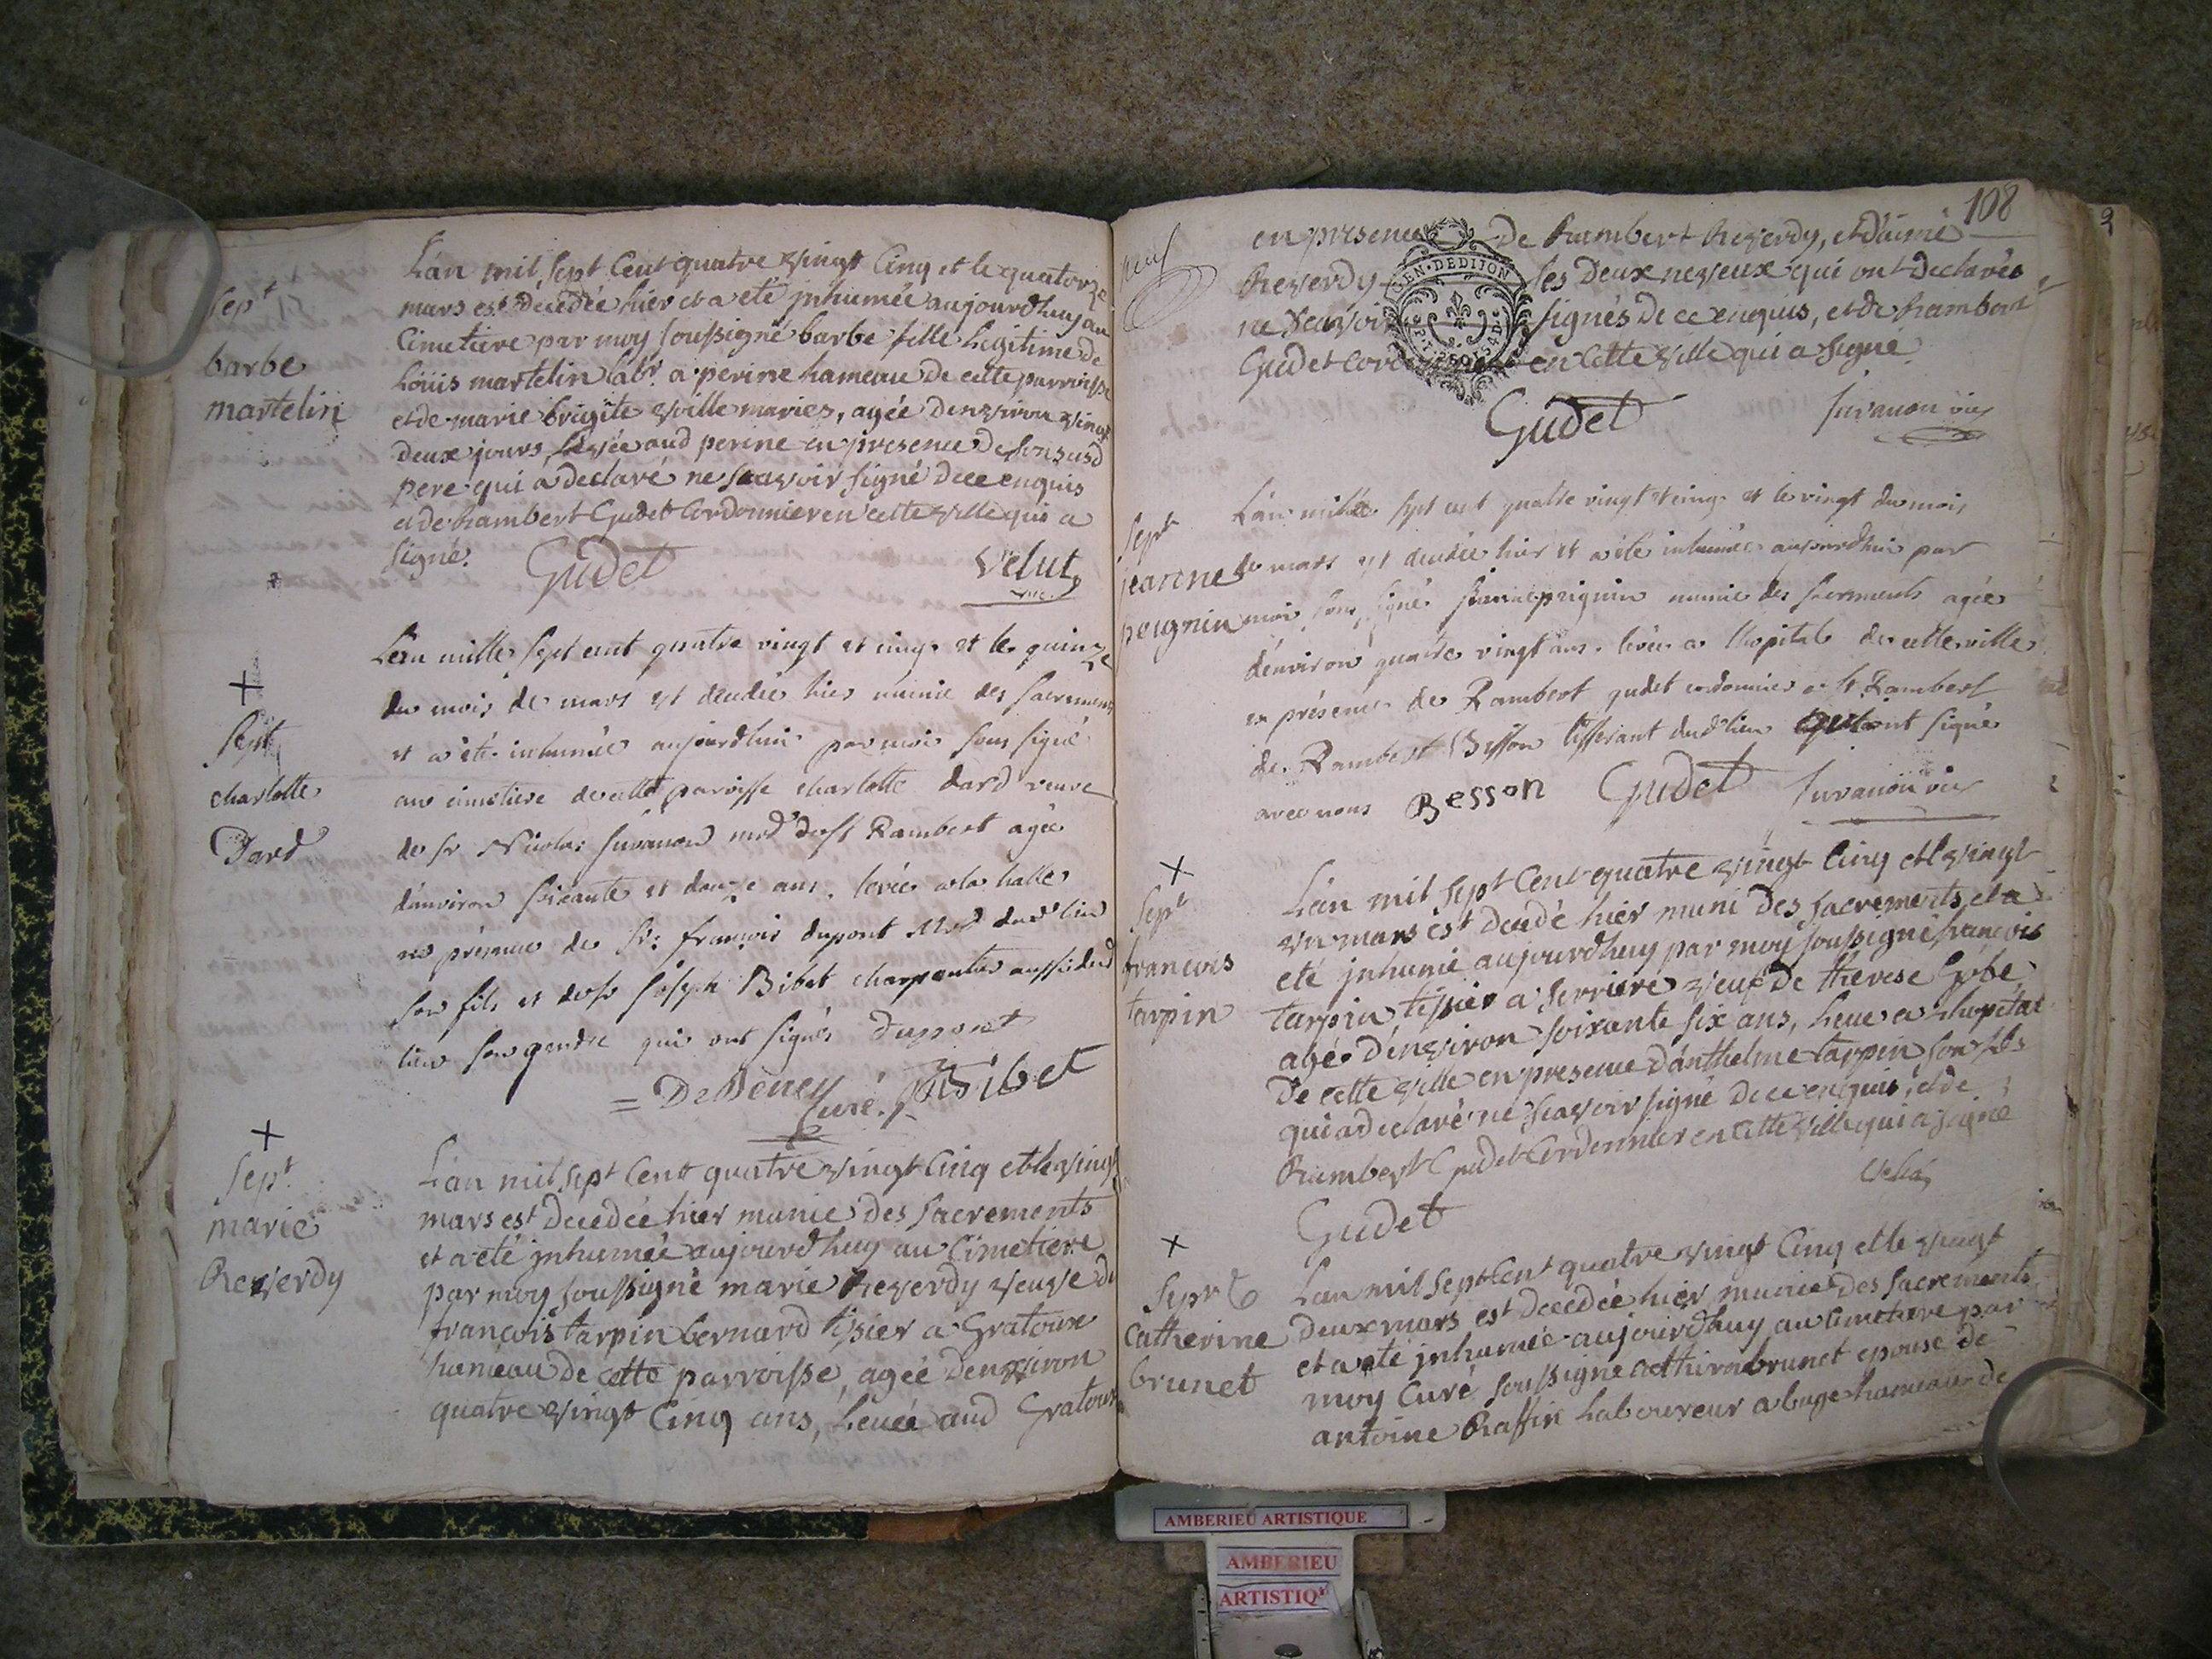 Sept
barbe
martelin
L'an mil sept Cent quatre vingt Cinq et le quatorze
mars est decedée hier et a eté jnhumée aujourdhuy au
Cimetiere par moy soussigné barbe fille Legitime de
Loüis martelin labr. a perine hameau de cette parroisse
et de marie brigite ville mariés, agée d'environ vingt
deux jours, Levée aud perine en presence de son susd
pere qui a declaré ne scavoir signé de ce enquis
et de Rambert Gudet Cordonnier en cette ville qui a
signé.
Gudet
Velut
vic.
+
Sept
charlotte
Dard
L'an mille sept cent quatre vingt et cinq et le quinze
du mois de mars est decedée hier munie des sacremens
et a été inhumée aujourdhui par moi sous signé
au cimetiere de cette paroisse charlotte dard veuve
de sr Nicolas Juvanon md de st Rambert agée
d'environ soixante et douze ans, levée a la halle
en présence de sr françois dupont Md dud lieu
son fils et de sr joseph Bibet charpentier aussi dud
lieu son gendre qui ont signés Dupont
= DeDeney
Curé.
Bibet
+
Sept
marie
Reverdy
L'an mil sept Cent quatre vingt Cinq et le vingt
mars est decedée hier munie des sacrements
et a eté jnhumée aujourdhuy au Cimetiere
par moy soussigné marie Reverdy veuve de
françois tarpin bernard tissier a Gratoux
hameau de cette parroisse, agée d'environ
quatre vingt Cinq ans, Levée aud Gratoux
108
en presence de Rambert Reverdy, et d'aimé
Reverdy ses deux neveux qui ont declarés
ne scavoir signés de ce enquis, et de Rambert
Gudet Cordonnier en Cette ville qui a signé
GEN. DE DIJON
Gudet
Juvanon vic
Sept
jeanne
peignin
L'an mille sept cent quatre vingt et cinq et le vingt du mois
de mars est decedée hier et a été inhumée aujourdhui par
moi sous signé jeanne peignin munie des sacrements agée
d'environ quatre vingt ans, levée a l'hopital de cette ville
en présence de Rambert gudet cordonnier a st Rambert
de Rambert Besson tisserant dud lieu qui ont signé
avec nous Besson Gudet Juvanon vic
+
Sept
francois
tarpin
L'an mil sept Cent quatre vingt Cinq et le vingt
un mars est decedé hier muni des sacrements et a
eté jnhumé aujourdhuy par moy soussigné francois
tarpin tissier a serriere veuf de therese Gobe
agé d'environ soixante six ans, Leve a l'hopital
de cette ville en presence d'anthelme tarpin son fils
qui a declaré ne scavoir signé de ce enquis, et de
Rambert Gudet Cordonnier en Cette ville qui a signé
Gudet
+
Sept
Catherine
brunet
L'an mil sept Cent quatre vingt Cinq et le vingt
deux mars est decedée hier munie des sacrements
et a eté jnhumée aujourdhuy au Cimetiere par
moy Curé soussigné catherine brunet epouse de
antoine Raffin Laboureur a buge hameau de
AMBERIEU ARTISTIQUE
AMBERIEU
ARTISTIQ